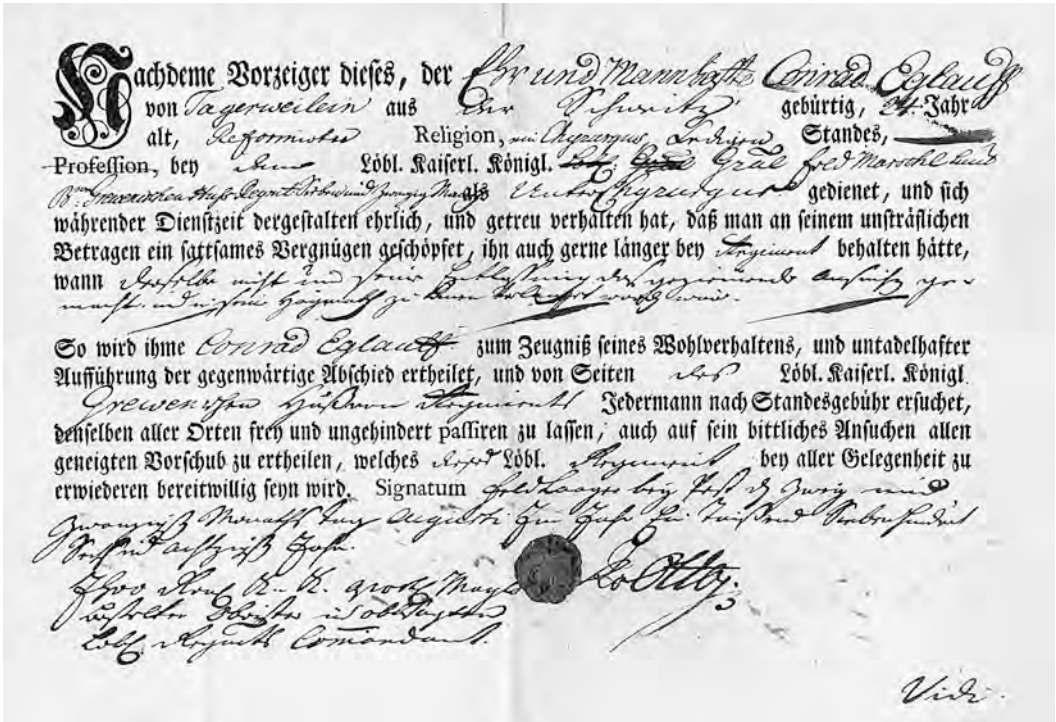 Nachdeme Vorzeiger dieses, der Ehr und Mannhaffte Conrad Eglauff
von Tagerweilein aus der Schweitz gebürtig, 24. Jahr
alt, Reformirter Religion, ein Chyrurgus, Ledigen Standes,
Profession, bey dem Löbl. Kaiserl. Königl. Gral Feld Marschl Lieut
Br. Grewenischen Huß. Regmt Sieben und Zwanzig Mon. als Unter Chyrurgus gedienet, und sich
währender Dienstzeit dergestalten ehrlich, und getreu verhalten hat, daß man an seinem unsträflichen
Betragen ein sattsames Vergnügen geschöpfet, ihn auch gerne länger bey Regiment behalten hätte,
wann derselbe nicht um seine Entlassung das geziemende Ansuchen ge-
macht und
So wird ihme Conrad Eglauff zum Zeugniß seines Wohlverhaltens, und untadelhafter
Aufführung der gegenwärtige Abschied ertheilet, und von Seiten des Löbl. Kaiserl. Königl
Grewenischen Hußaren Regiments Jedermann nach Standesgebühr ersuchet,
denselben aller Orten frey und ungehindert passiren zu lassen, auch auf sein bittliches Ansuchen allen
geneigten Vorschub zu ertheilen, welches Löbl. Regiment bey aller Gelegenheit zu
erwiederen bereitwillig seyn wird. Signatum Feldlaager bey Pest d. Zwey und
Zwanzigst Monaths Tag Augusti Im Jahr Ein Taußend Siebenhundert
Sechs und achtzigst Jahr.
Ihro Röml. K. K. Apost. Mayt
bestelter Obrister und
Löbl. Regmts Comandant.
Vidi.